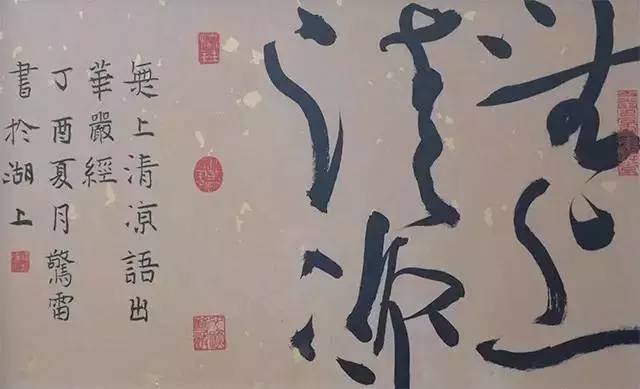 無上
清凉
無上清凉語出
華嚴經
丁酉夏月驚雷
書於湖上